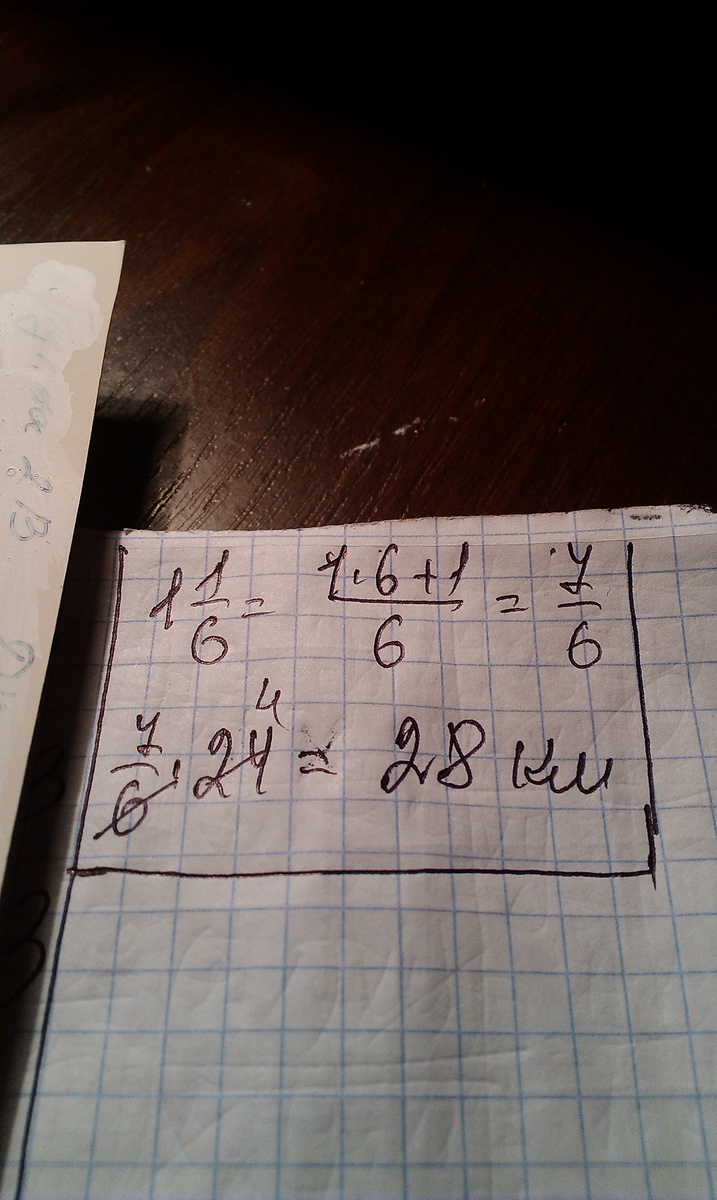 1 1/6 = 1·6+1/6 = 7/6
7/6 · 24 4 = 28 км